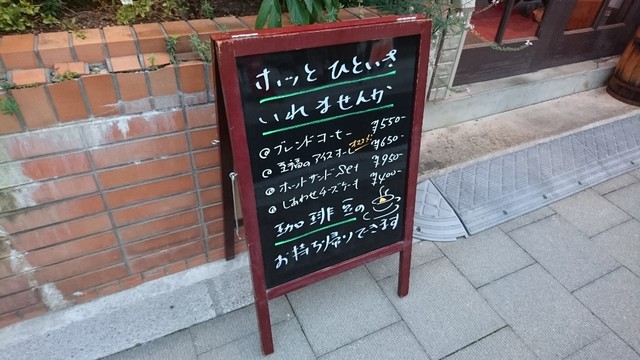 ホッと ひといき
いれませんか
◎ブレンドコーヒー ¥550-
◎至福のアイスコーヒー オススメ! ¥650-
◎ホットサンドset ¥950-
◎しあわせチーズケーキ ¥400-
珈琲豆の
お持ち帰りできます